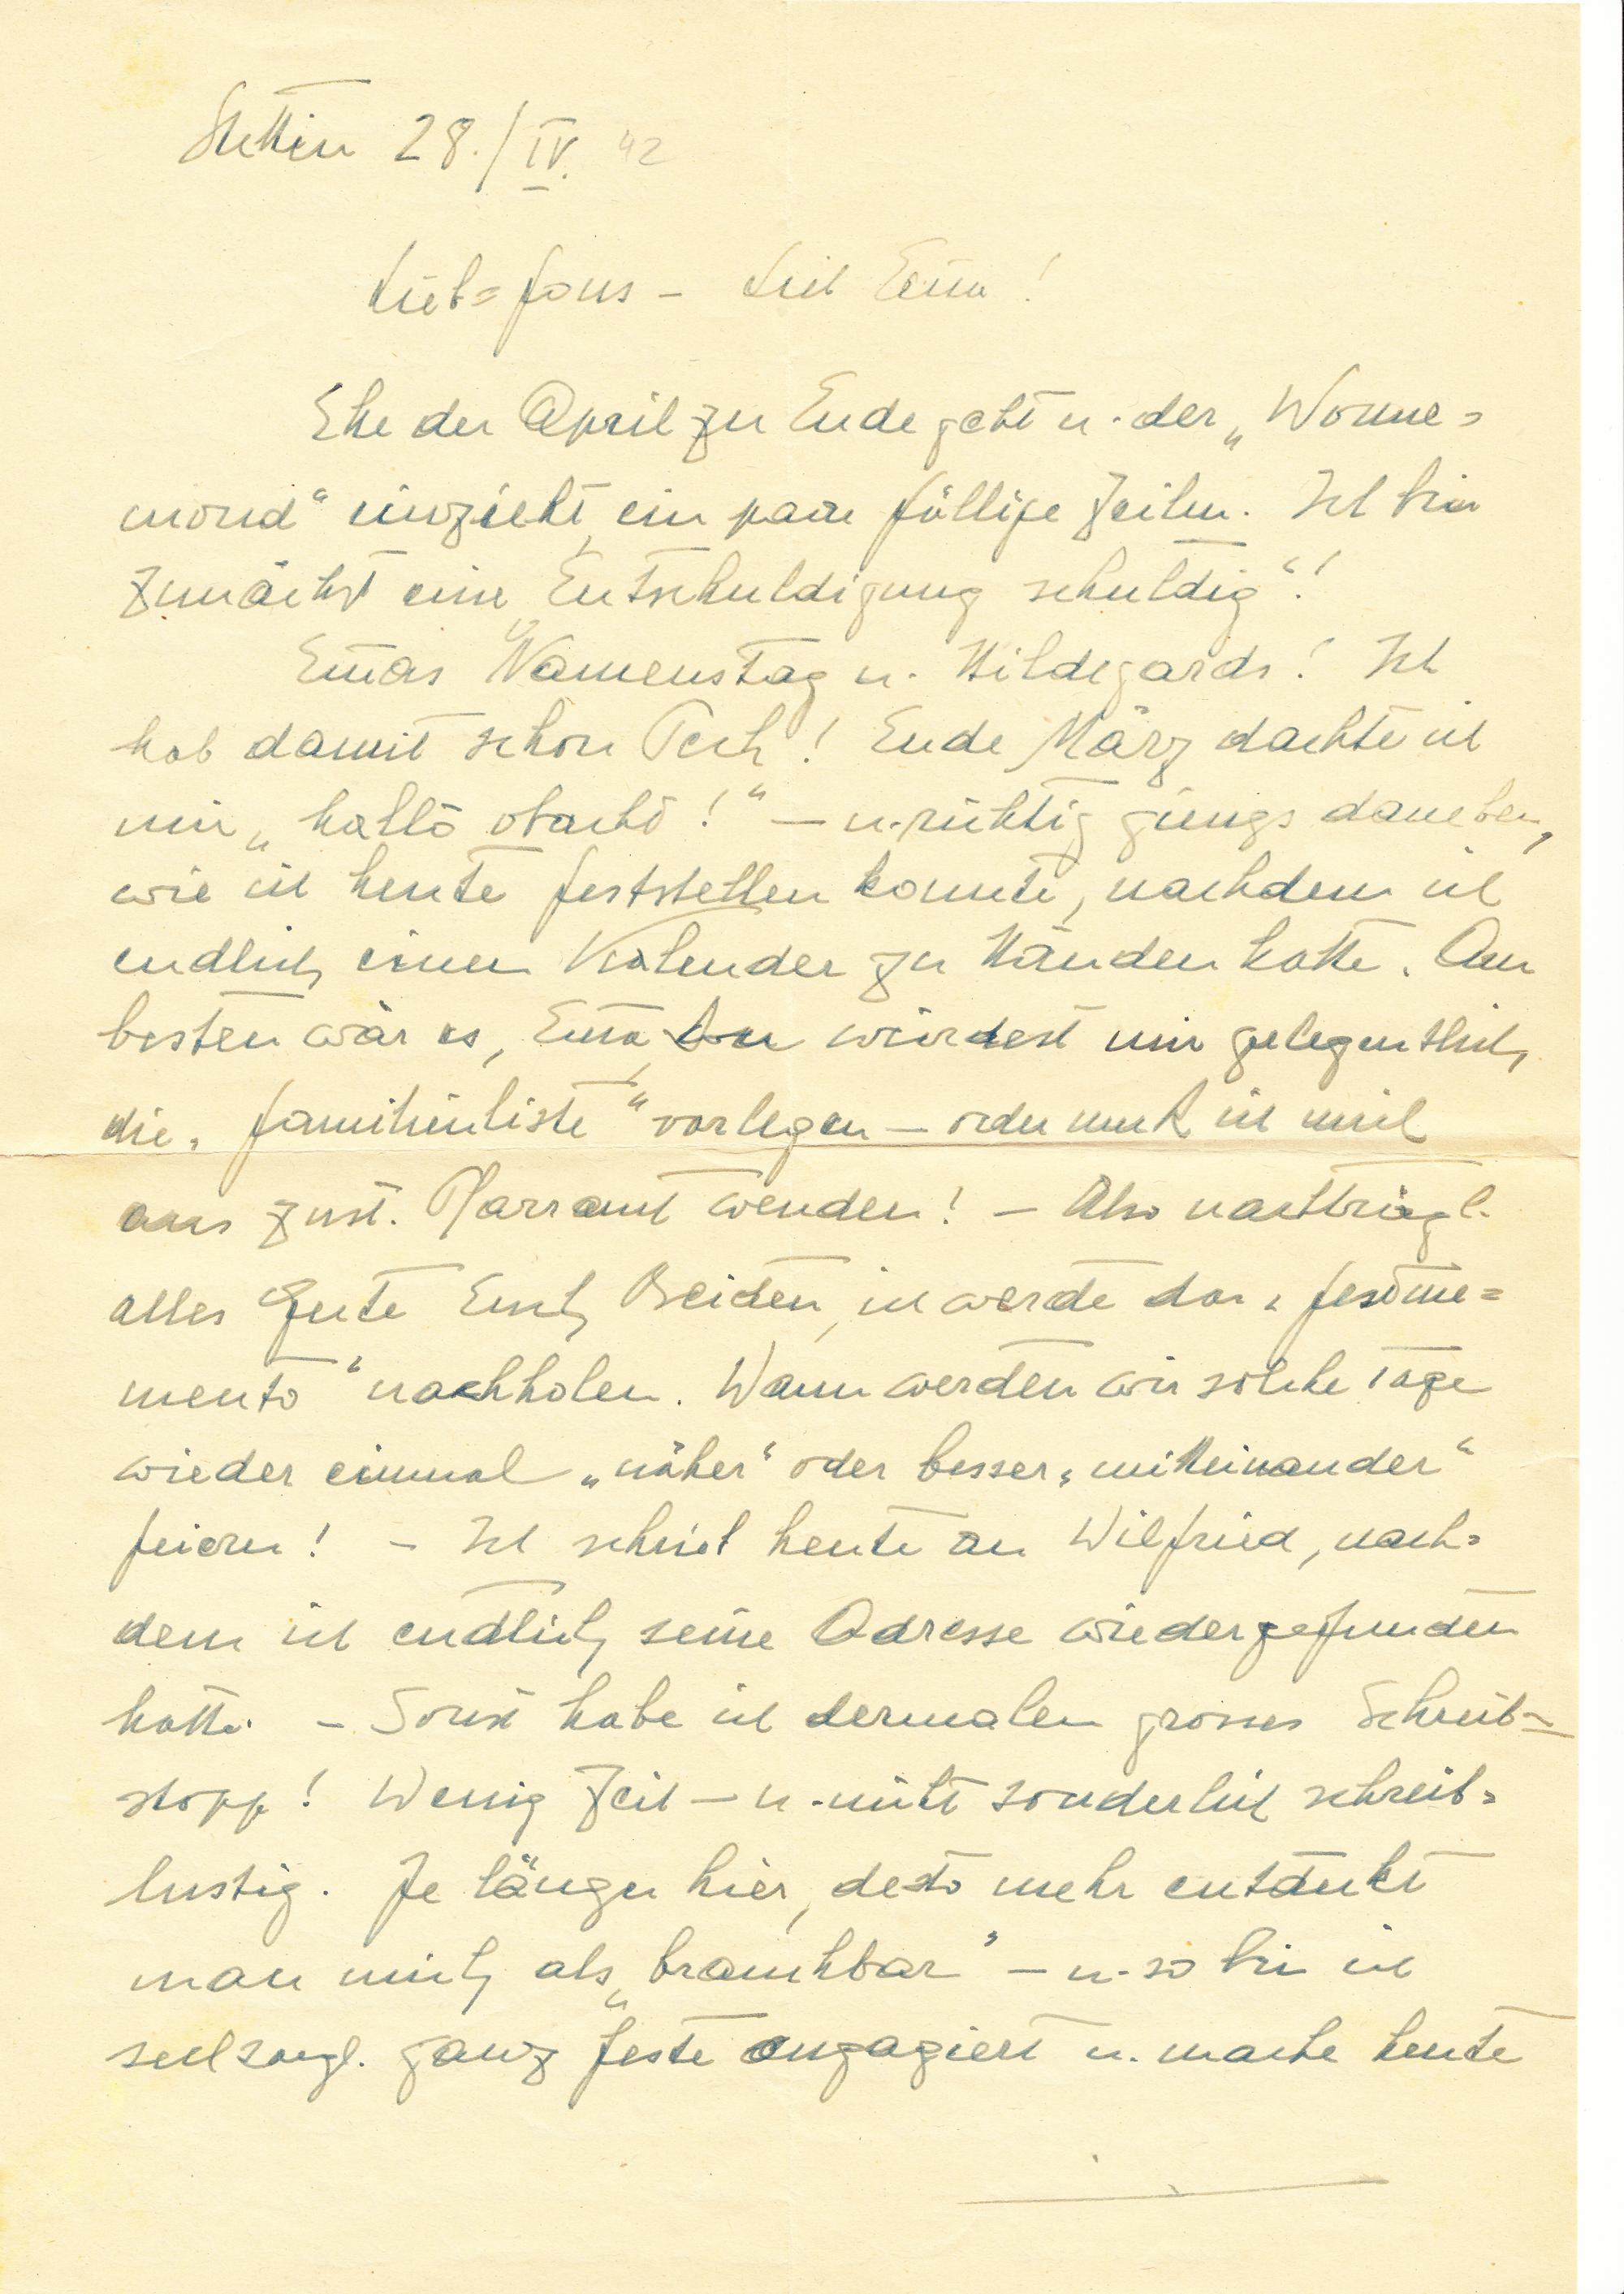 Stettin 28./IV. 42
Lieb=fons - Lieb Em̄a!
Ehe der April zu Ende geht u. der „Wonne=
mond“ einzieht, ein paar fällige Zeilen. Ich bin
zunächst eine „Entschuldigung schuldig“!
Em̄as Namenstag u. Hildegards! Ich
hab damit schon Pech! Ende März dachte ich
mir „hallo obacht!“ — u. richtig giengs daneben,
wie ich heute feststellen konnte, nachdem ich
endlich einen Kalender zu Händen hatte. Am
besten wär es, Em̄a Du würdest mir gelegentlich
die „Familienliste“ vorlegen — oder muß ich mich
ans zust. Pfarramt wenden! — Also nachträgl.
alles Gute Euch Beiden, ich werde das „Festme=
mento“ nachholen. Wann werden wir solche Tage
wieder einmal „näher“ oder besser „mitteinander“
feiern! - Ich schrieb heute an Wilfried, nach=
dem ich endlich seine Adresse wiedergefunden
hatte. - Sonst habe ich dermalen grosses Schreib=
stopp! Wenig Zeit — u. nicht sonderlich schreib=
lustig. Je länger hier, desto mehr entdeckt
man mich als „brauchbar“ — u. so bin ich
seelsorgl. ganz feste engagiert u. mache heute